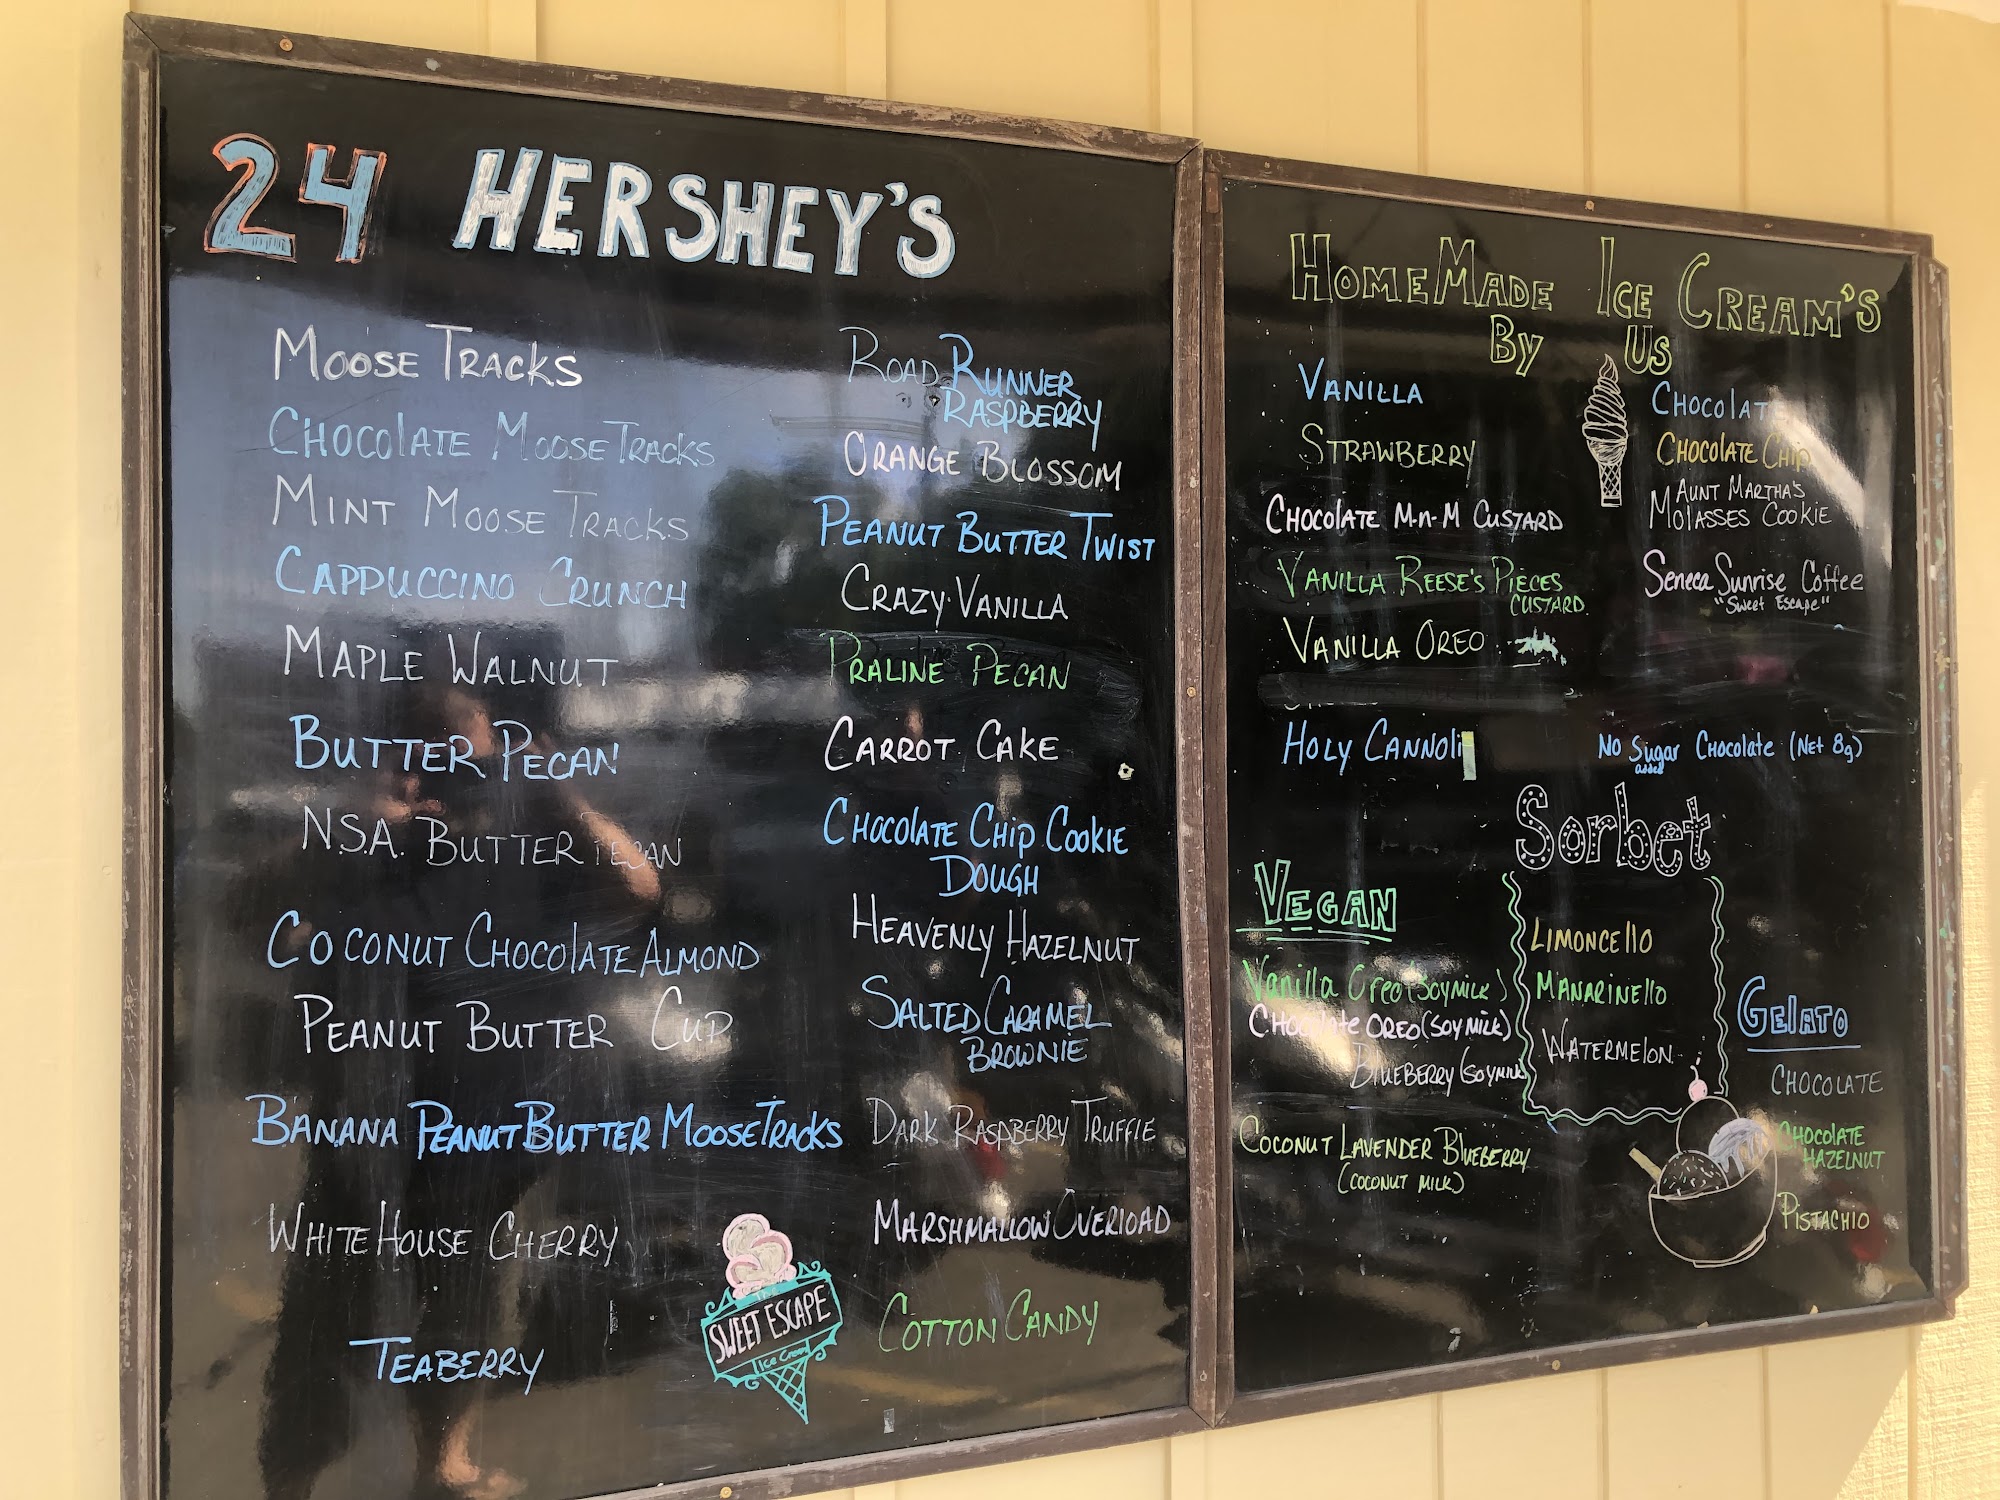 24 HERSHEY'S
MOOSE TRACKS
CHOCOLATE MOOSE TRACKS
MINT MOOSE TRACKS
CAPPUCCINO CRUNCH
MAPLE WALNUT
BUTTER PECAN
N.S.A. BUTTER PECAN
COCONUT CHOCOLATE ALMOND
PEANUT BUTTER CUP
BANANA PEANUT BUTTER MOOSE TRACKS
WHITE HOUSE CHERRY
TEABERRY
ROAD RUNNER
RASPBERRY
ORANGE BLOSSOM
PEANUT BUTTER TWIST
CRAZY VANILLA
PRALINE PECAN
CARROT CAKE
CHOCOLATE CHIP COOKIE
DOUGH
HEAVENLY HAZELNUT
SALTED CARAMEL
BROWNIE
DARK RASPBERRY TRUFFLE
MARSHMALLOW OVERLOAD
COTTON CANDY
THE
SWEET ESCAPE
Ice Cream
HOMEMADE ICE CREAM'S
BY US
VANILLA
STRAWBERRY
CHOCOLATE M-n-M CUSTARD
VANILLA REESE'S PIECES
CUSTARD
VANILLA OREO
HOLY CANNOLI
CHOCOLATE
CHOCOLATE CHIP
AUNT MARTHA'S
MOLASSES COOKIE
Seneca Sunrise Coffee
"Sweet Escape"
No Sugar Chocolate (Net 8g)
added
VEGAN
Vanilla Oreo (SOYMILK)
CHOCOLATE OREO (SOY MILK)
BLUEBERRY (SOYMILK
COCONUT LAVENDER BLUEBERRY
(COCONUT MILK)
Sorbet
LIMONCELLO
MANARINELLO
WATERMELON
GELATO
CHOCOLATE
CHOCOLATE
HAZELNUT
PISTACHIO